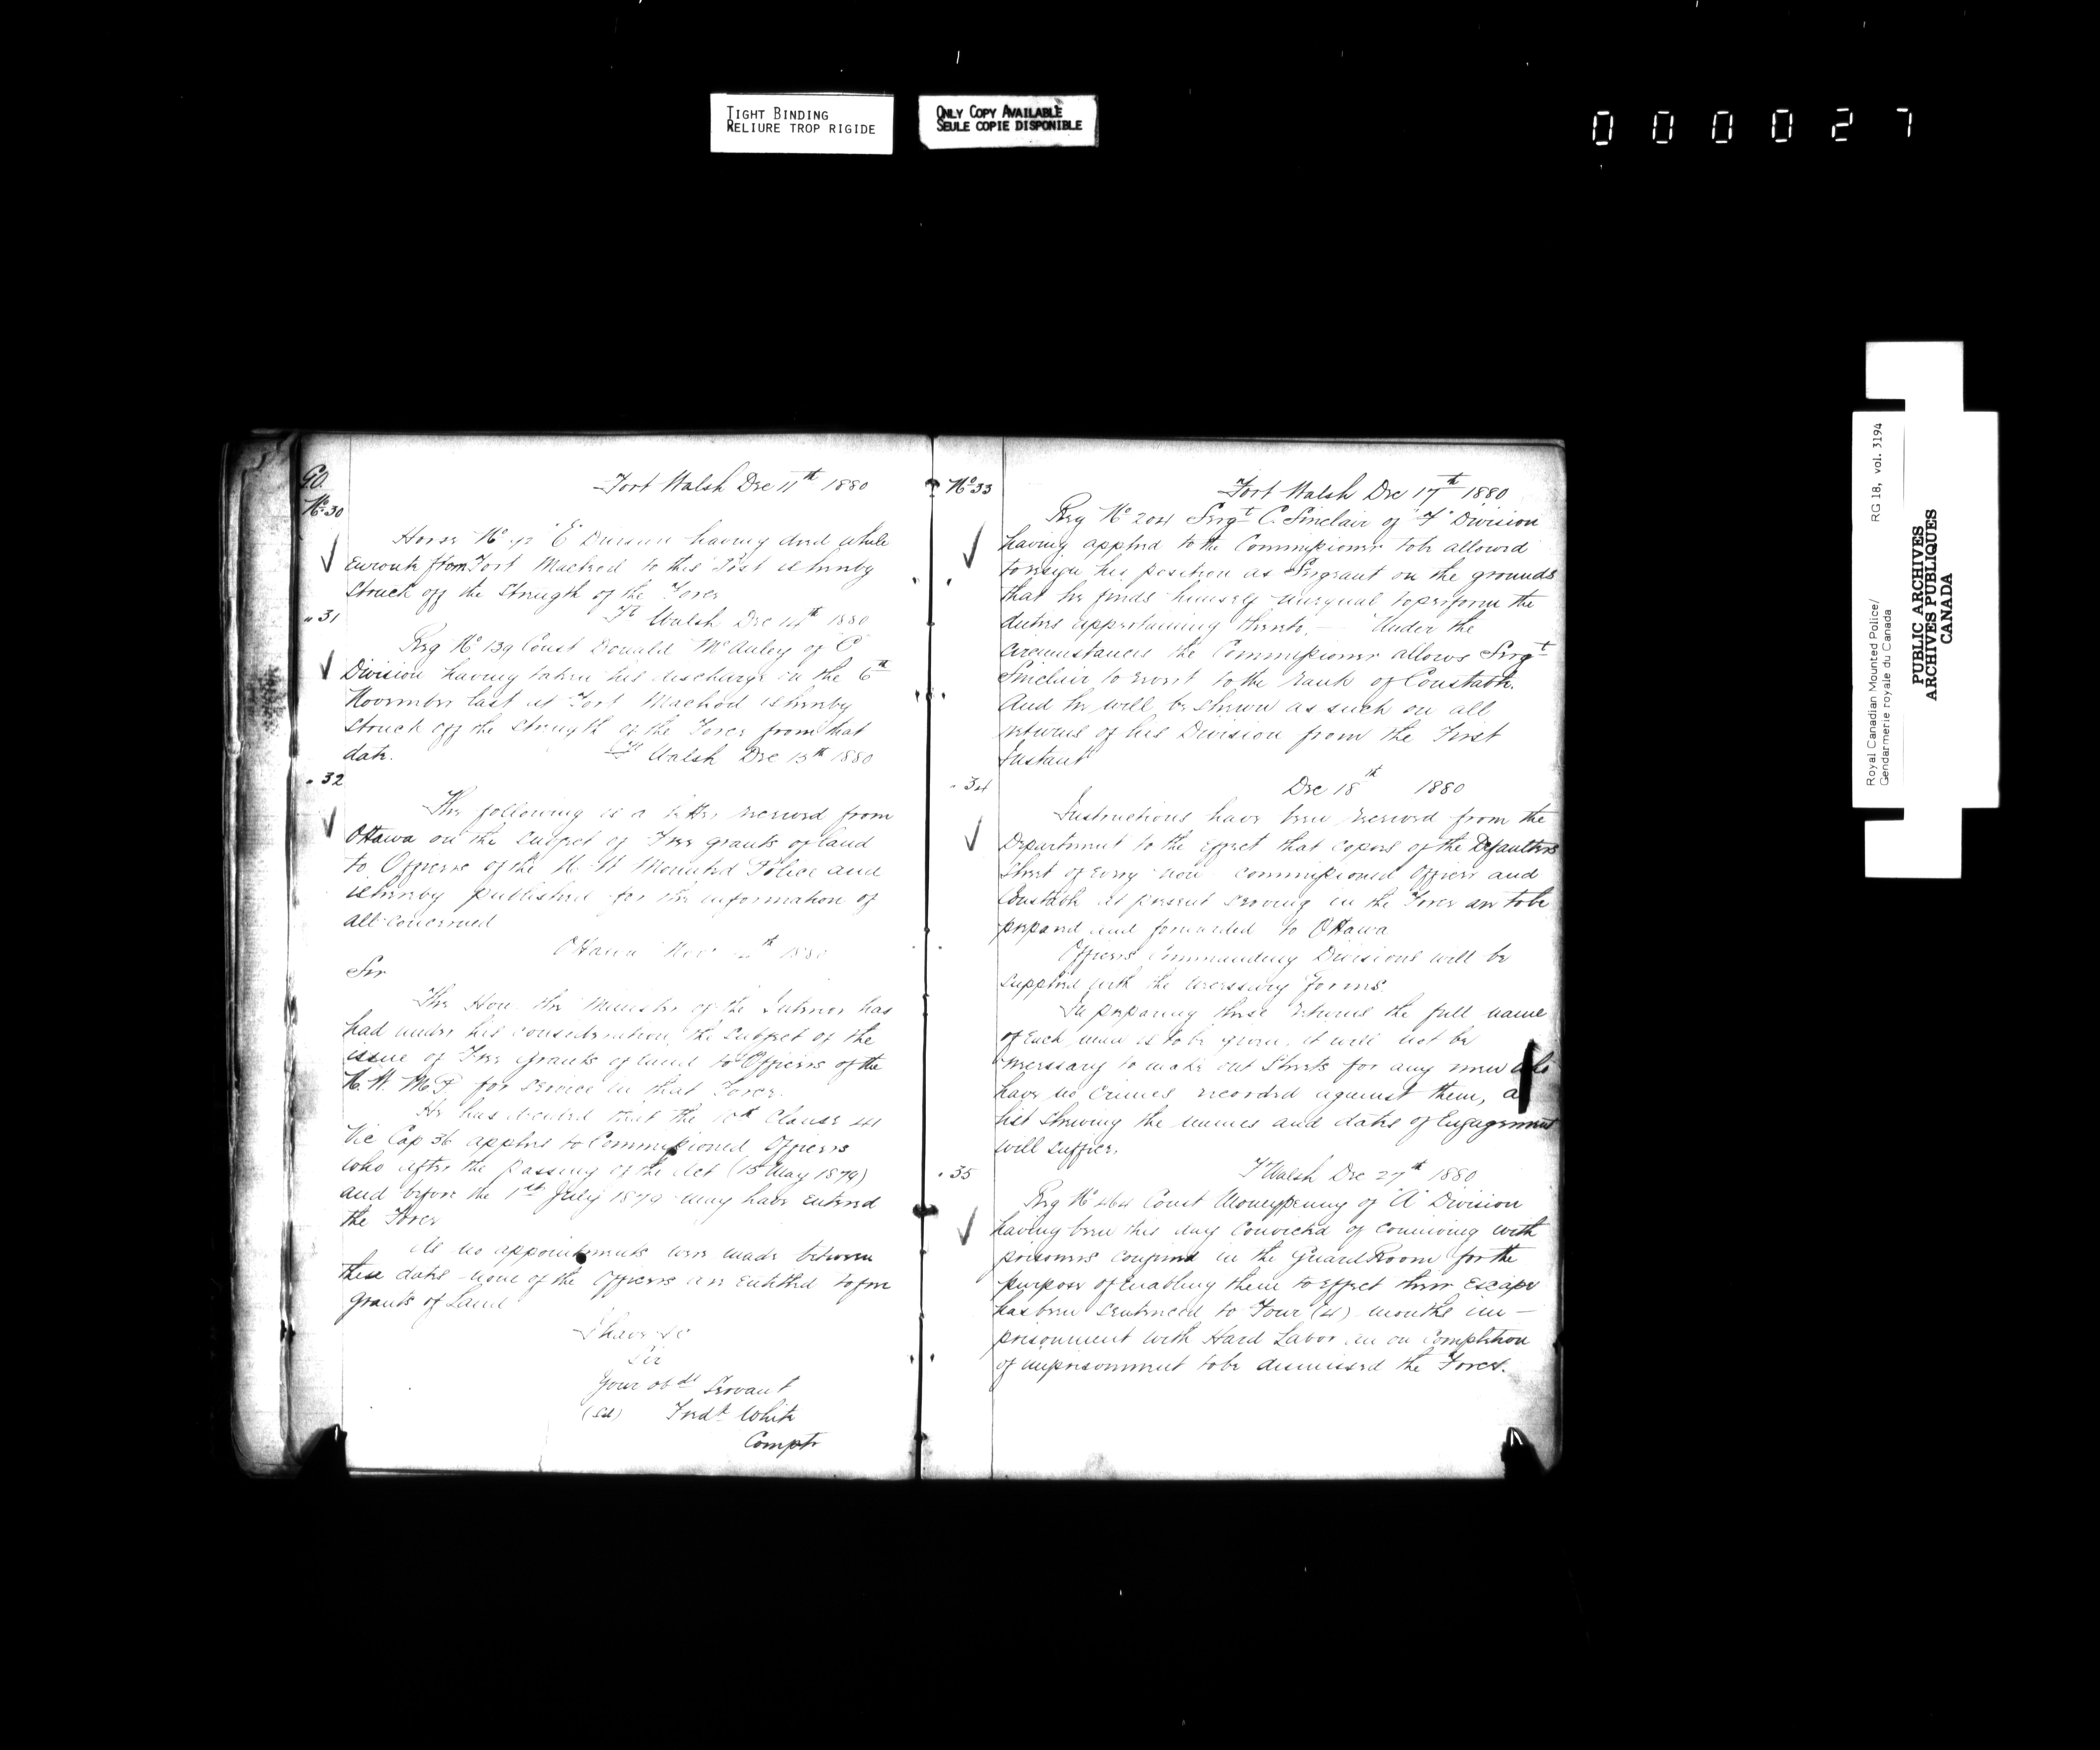 TIGHT BINDING
RELIURE TROP RIGIDE
ONLY COPY AVAILABLE
SEULE COPIE DISPONIBLE
000027
G.O.
No. 30
Fort Walsh Dec 11th 1880
Horse No "E" Division having died while
enroute from Fort Macleod to this Post is hereby
struck off the Strength of the Force
" 31
Ft Walsh Dec 14th 1880
Reg No 139 Const Donald McAuley of "C"
Division having taken his discharge on the 6th
November last at Fort Macleod is hereby
struck off the strength of the Force from that
date.
" 32
Ft Walsh Dec 15th 1880
The following is a letter received from
Ottawa on the subject of Free grants of land
to Officers of the N. W Mounted Police and
is hereby published for the information of
all concerned
Ottawa Nov th 1880
Sir
The Hon the Minister of the Interior has
had under his consideration the subject of the
issue of Free Grants of land to Officers of the
N. W. M. P. for service in that Force.
He has decided that the 10th Clause 41
Vic Cap 36 applies to Commissioned Officers
who after the passing of the Act (15 May 1879)
and before the 1st July 1879 may have entered
the Force
As no appointments were made between
these dates none of the Officers are entitled to free
grants of Land
I have &c
Sir
Your obdt Servant
(Sd) Fredk White
Comptr
No 33
Fort Walsh Dec 17th 1880
Reg No 204 Sergt C. Sinclair of "F" Division
having applied to the Commissioner to be allowed
to resign his position as Sergeant on the grounds
that he finds himself unequal to perform the
duties appertaining thereto, — Under the
circumstances the Commissioner allows Sergt
Sinclair to revert to the rank of Constable.
And he will be shewn as such on all
returns of his Division from the First
Instant
" 34
Dec 18th 1880
Instructions have been received from the
Department to the effect that copies of the Defaulters
Sheet of every non commissioned Officer and
Constable at present serving in the Force are to be
prepared and forwarded to Ottawa
Officers Commanding Divisions will be
supplied with the necessary forms.
In preparing these returns the full name
of each man is to be given, it will not be
necessary to make out Sheets for any men who
have no crimes recorded against them, a
list shewing the names and dates of Engagement
will suffice.
" 35
F Walsh Dec 27th 1880
Reg No 464 Const Moneypenny of "A" Division
having been this day convicted of conniving with
prisoners confined in the Guard Room for the
purpose of enabling them to effect their escape
has been sentenced to Four (4) months im-
prisonment with Hard Labor an on completion
of imprisonment to be dismissed the Force.
Royal Canadian Mounted Police/
Gendarmerie royale du Canada
RG 18, vol. 3194
PUBLIC ARCHIVES
ARCHIVES PUBLIQUES
CANADA